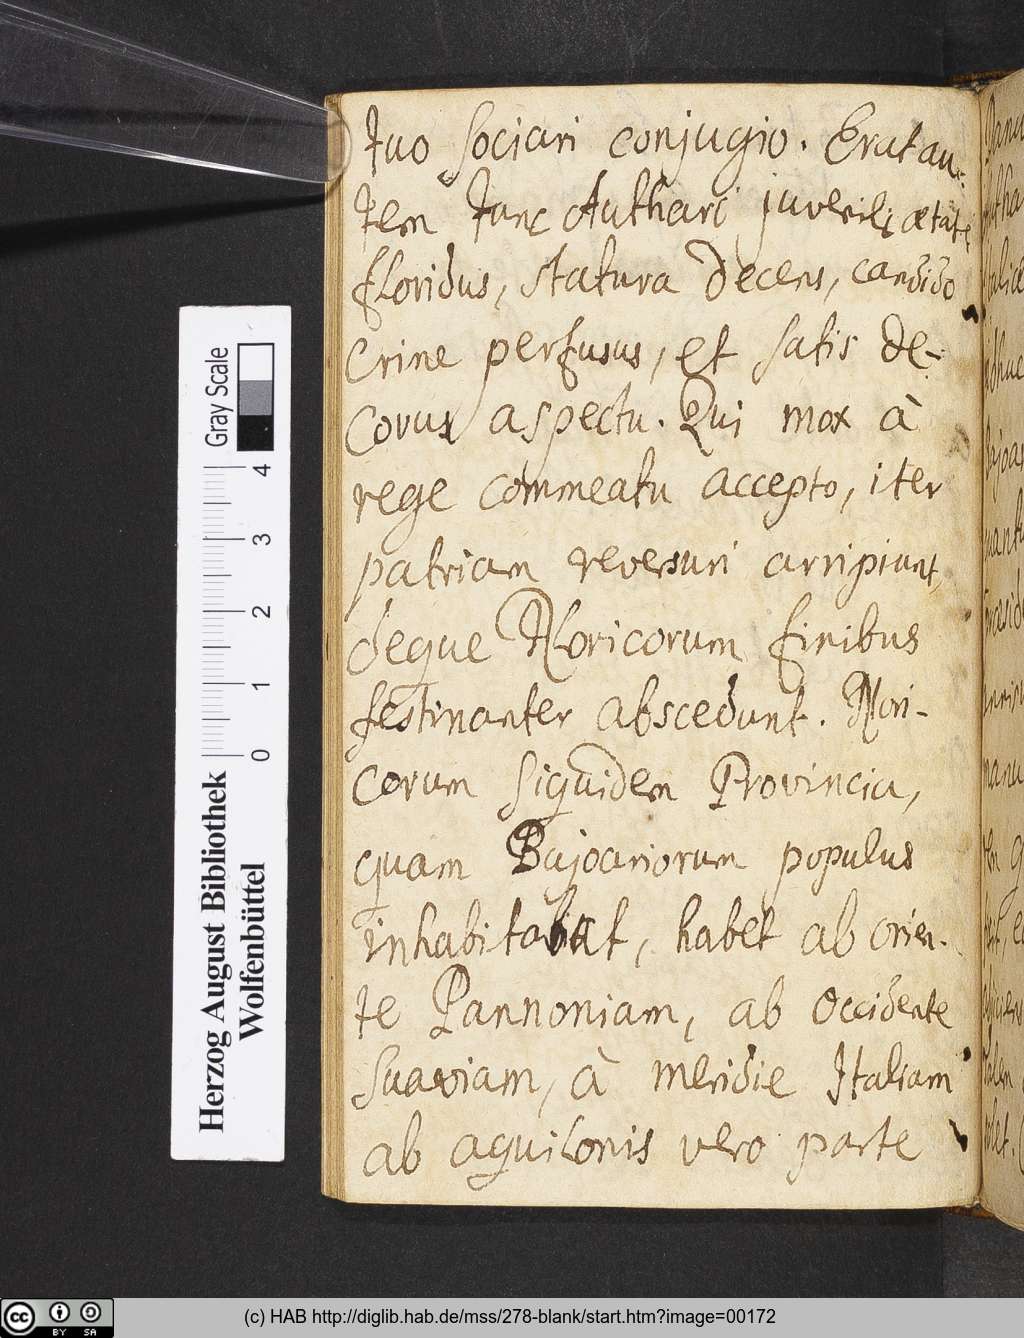 tuo sociari conjugio. Erat au-
tem tunc Authari juvenili ætate
floridus, statura decens, candido
crine perfusus, et satis de-
corus aspectu. Qui mox à
rege commeatu accepto, iter
patriam reversuri arripiunt,
deque Noricorum finibus
festinanter abscedunt. Nori-
corum siquidem Provincia,
quam Bajoariorum populus
inhabitat, habet ab orien-
te Pannoniam, ab occidente
Suaviam, à meridie Italiam
ab aquilonis vero parte
Gray Scale
0 1 2 3 4
Herzog August Bibliothek
Wolfenbüttel
cc BY SA
(c) HAB http://diglib.hab.de/mss/278-blank/start.htm?image=00172